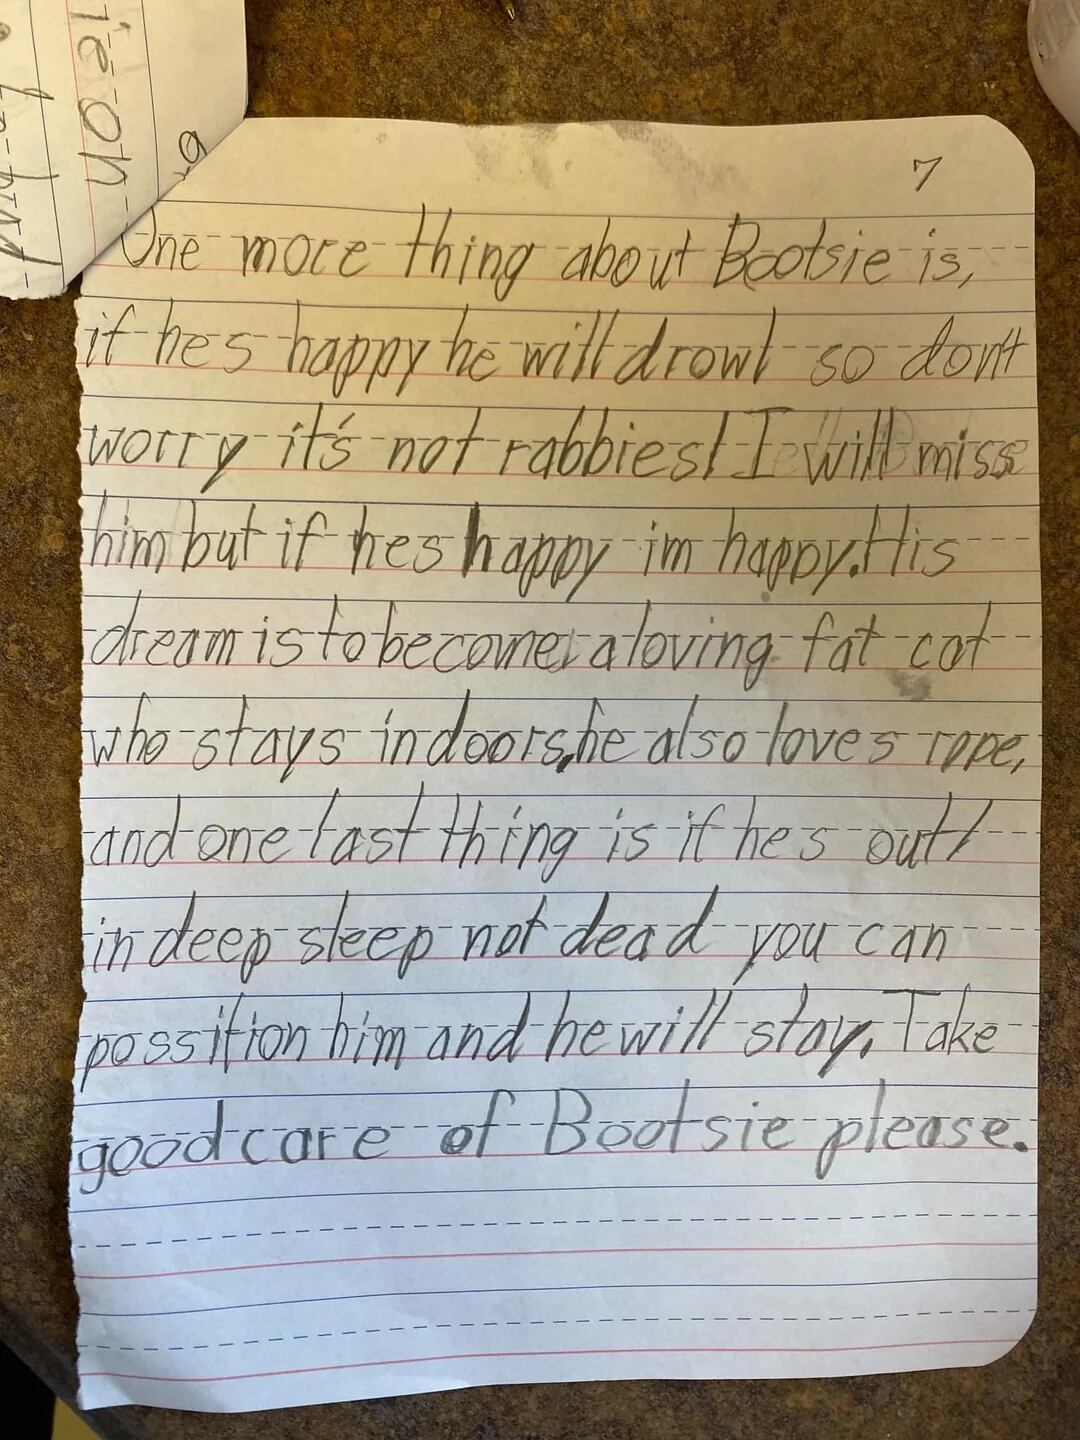 7
One more thing about Bootsie is,
if hes happy he will drowl so don't
worry it's not rabbies! I will miss
him but if hes happy im happy. His
dream is to become a loving fat cat
who stays indoors, he also loves rope,
and one last thing is if hes out/
in deep sleep not dead you can
possition him and he will stay. Take
good care of Bootsie please.